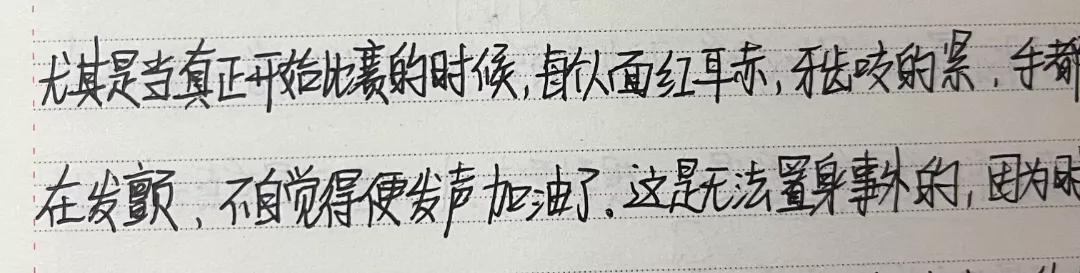 尤其是当真正开始比赛的时候,每个人面红耳赤,牙齿咬的紧,手都
在发颤,不自觉得便发声加油了。这是无法置身事外的,因为